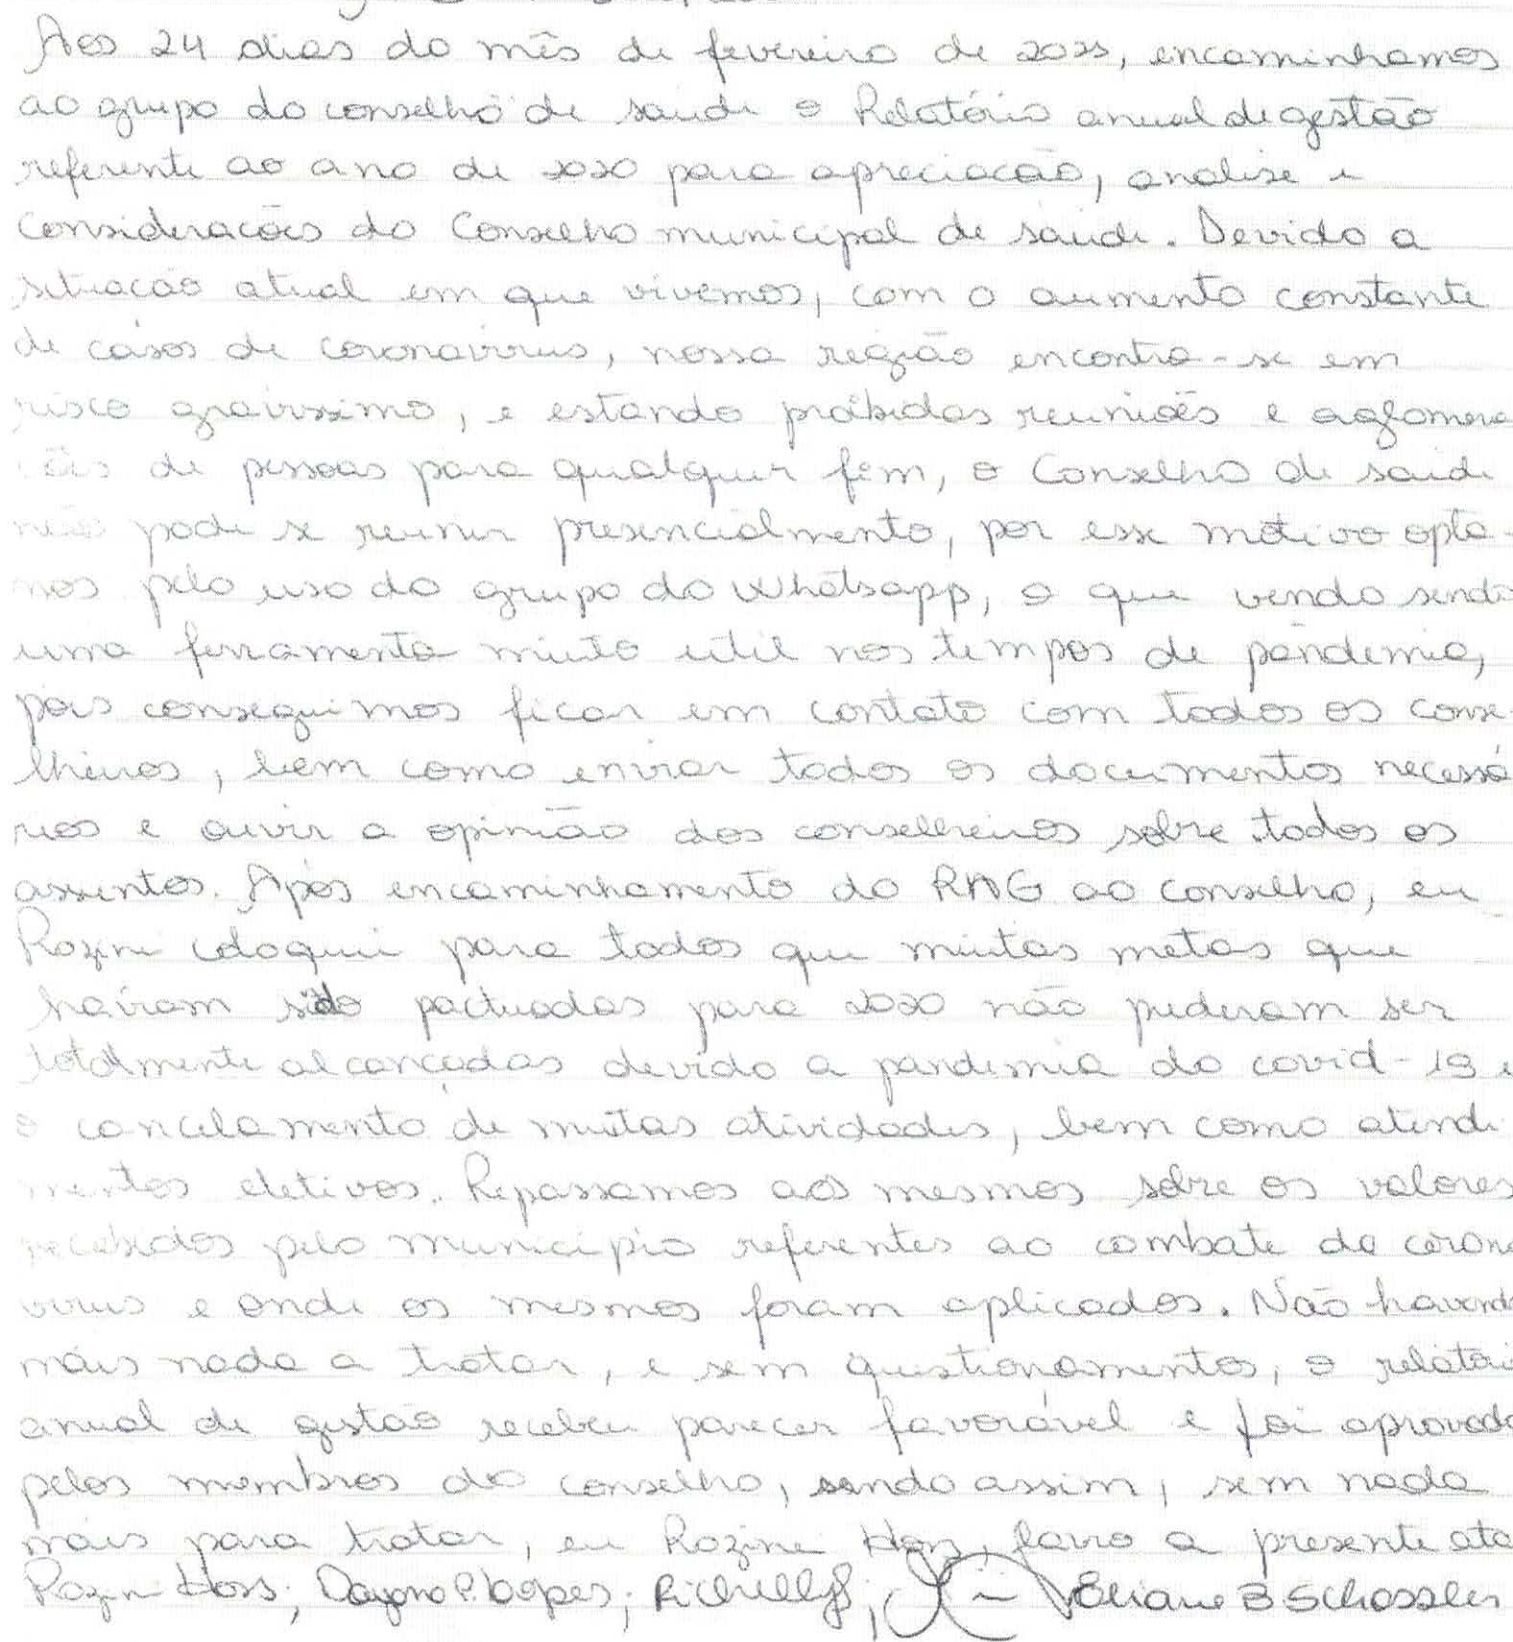 Aos 24 dias do mês de fevereiro de 2021, encaminhamos
ao grupo do conselho de saude o Relatório anual de gestão
referente ao ano de 2020 para apreciacão, analise e
consideracões do Conselho municipal de saúde. Devido a
situacão atual em que vivemos, com o aumento constante
de casos de coronavirus, nossa região encontra-se em
risco gravissimo, e estando proibidas reuniões e aglomera
ções de pessoas para qualquer fim, o Conselho de saude
não pode se reunir presencialmente, por esse motivo opta-
mos pelo uso do grupo do Whatsapp, o que vendo sendo
uma ferramenta muito util nos tempos de pandemia,
pois conseguimos ficar em contato com todos os conse-
lheiros, bem como enviar todos os documentos necessá
rios e ouvir a opinião dos conselheiros sobre todos os
assuntos. Após encaminhamento do RAG ao conselho, eu
Rozine coloquei para todos que muitas metas que
haviam sido pactuadas para 2020 não puderam ser
totalmente alcançadas devido a pandemia do covid-19 e
o cancelamento de muitas atividades, bem como atendi
mentos eletivos. Repassamos aos mesmos sobre os valores
recebidos pelo municipio referentes ao combate do corona
virus e onde os mesmos foram aplicados. Não havendo
mais nada a tratar, e sem questionamentos, o relatório
anual de gestão recebeu parecer favorável e foi aprovado
pelos membros do conselho, sendo assim, sem nada
mais para tratar, eu Rozine Hors, lavro a presente ata
Rozine Hors; Dayana P. Lopes; Eliane B Schossler